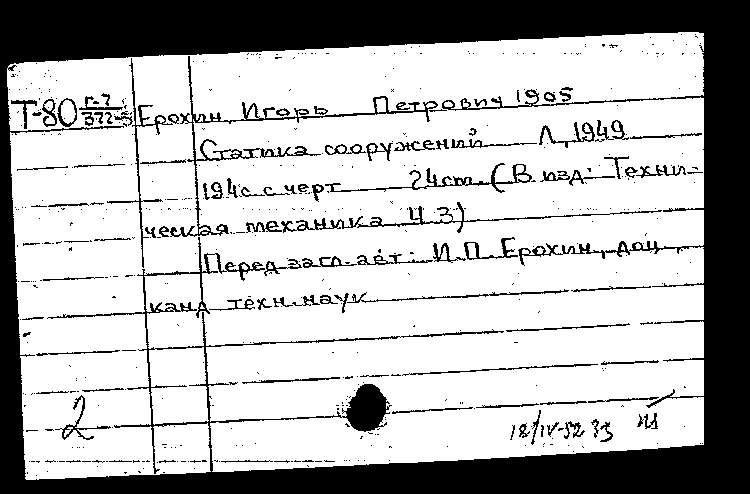 Т-80 Г-7/372-3 Ерохин, Игорь Петрович 1905
Статика сооружений Л, 1949
194с. с черт 24см. (В изд: Техни-
ческая механика Ч 3)
Перед загл. авт: И.П. Ерохин, доц.,
канд техн. наук
2
12/IV-52